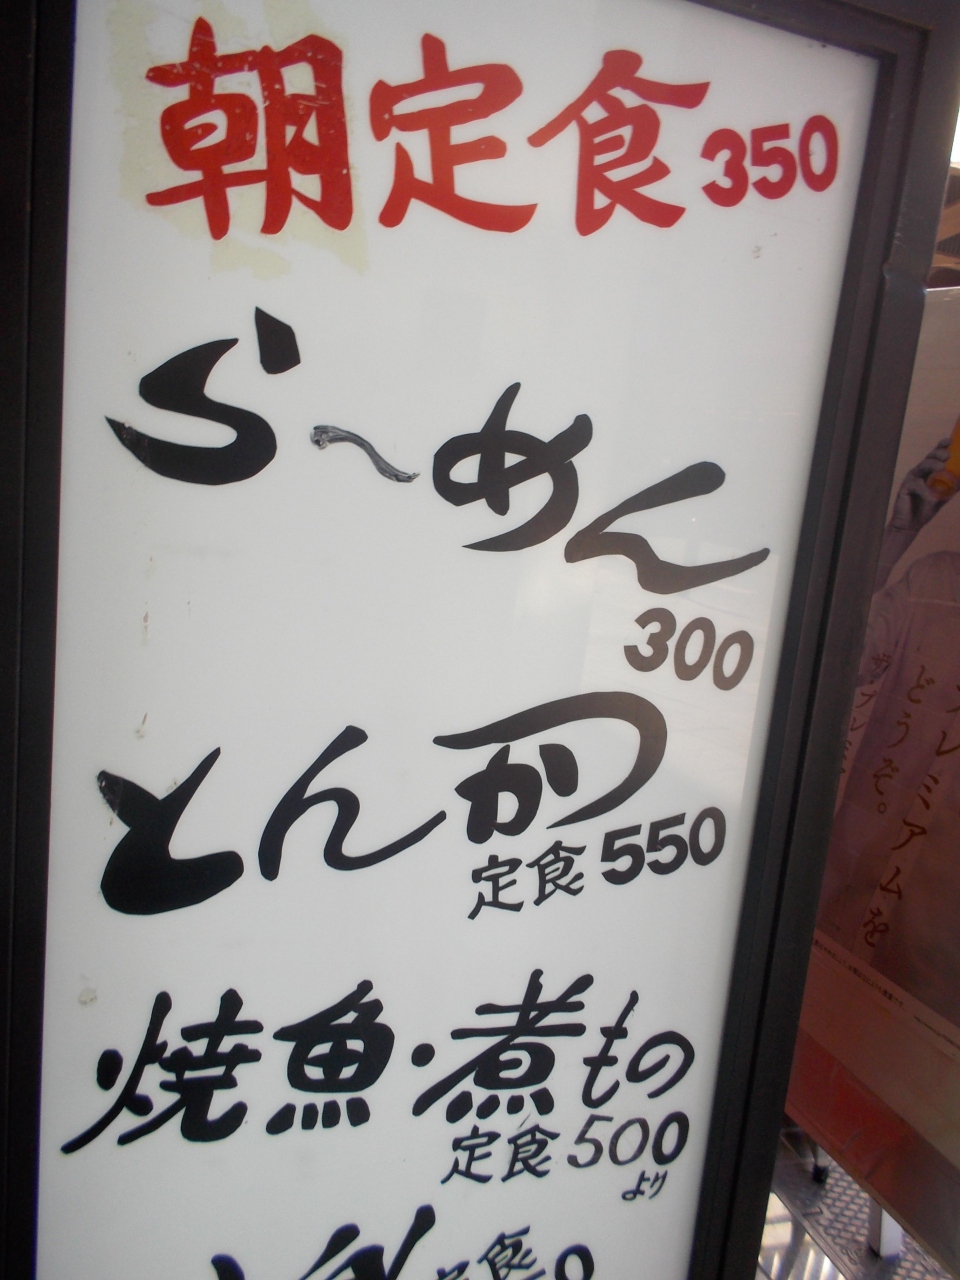 朝定食350
ら〜めん
300
とんかつ
定食550
焼魚・煮もの
定食500
より
プレミアムを
どうぞ。